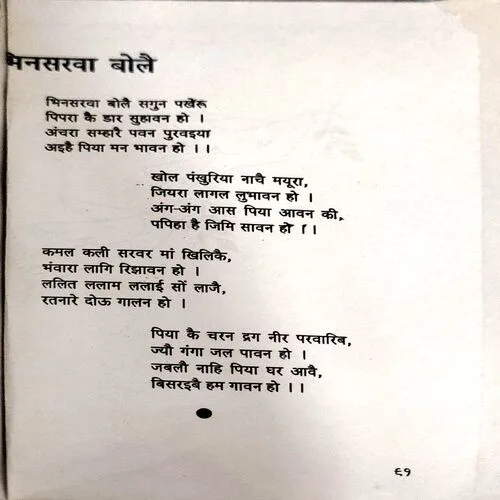 भिनसरवा बोलै
भिनसरवा बोलै सगुन पखेरू
पिपरा कै डार सुहावन हो ।
अंचरा सम्हारै पवन पुरवइया
अइहै पिया मन भावन हो ।।
खोल पंखुरिया नाचै मयूरा,
जियरा लागल लुभावन हो ।
अंग-अंग आस पिया आवन की,
पपिहा है जिमि सावन हो ।।
कमल कली सरवर मां खिलिकै,
भंवारा लागि रिझावन हो ।
ललित ललाम ललाई सों लाजै,
रतनारे दोऊ गालन हो ।
पिया कै चरन द्रग नीर परवारिब,
ज्यौ गंगा जल पावन हो ।
जबलौ नाहि पिया घर आवै,
बिसरइबै हम गावन हो ।।
६१